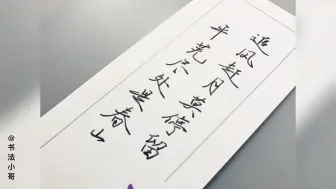 追风赶月莫停留
平芜尽处是春山
@书法小哥